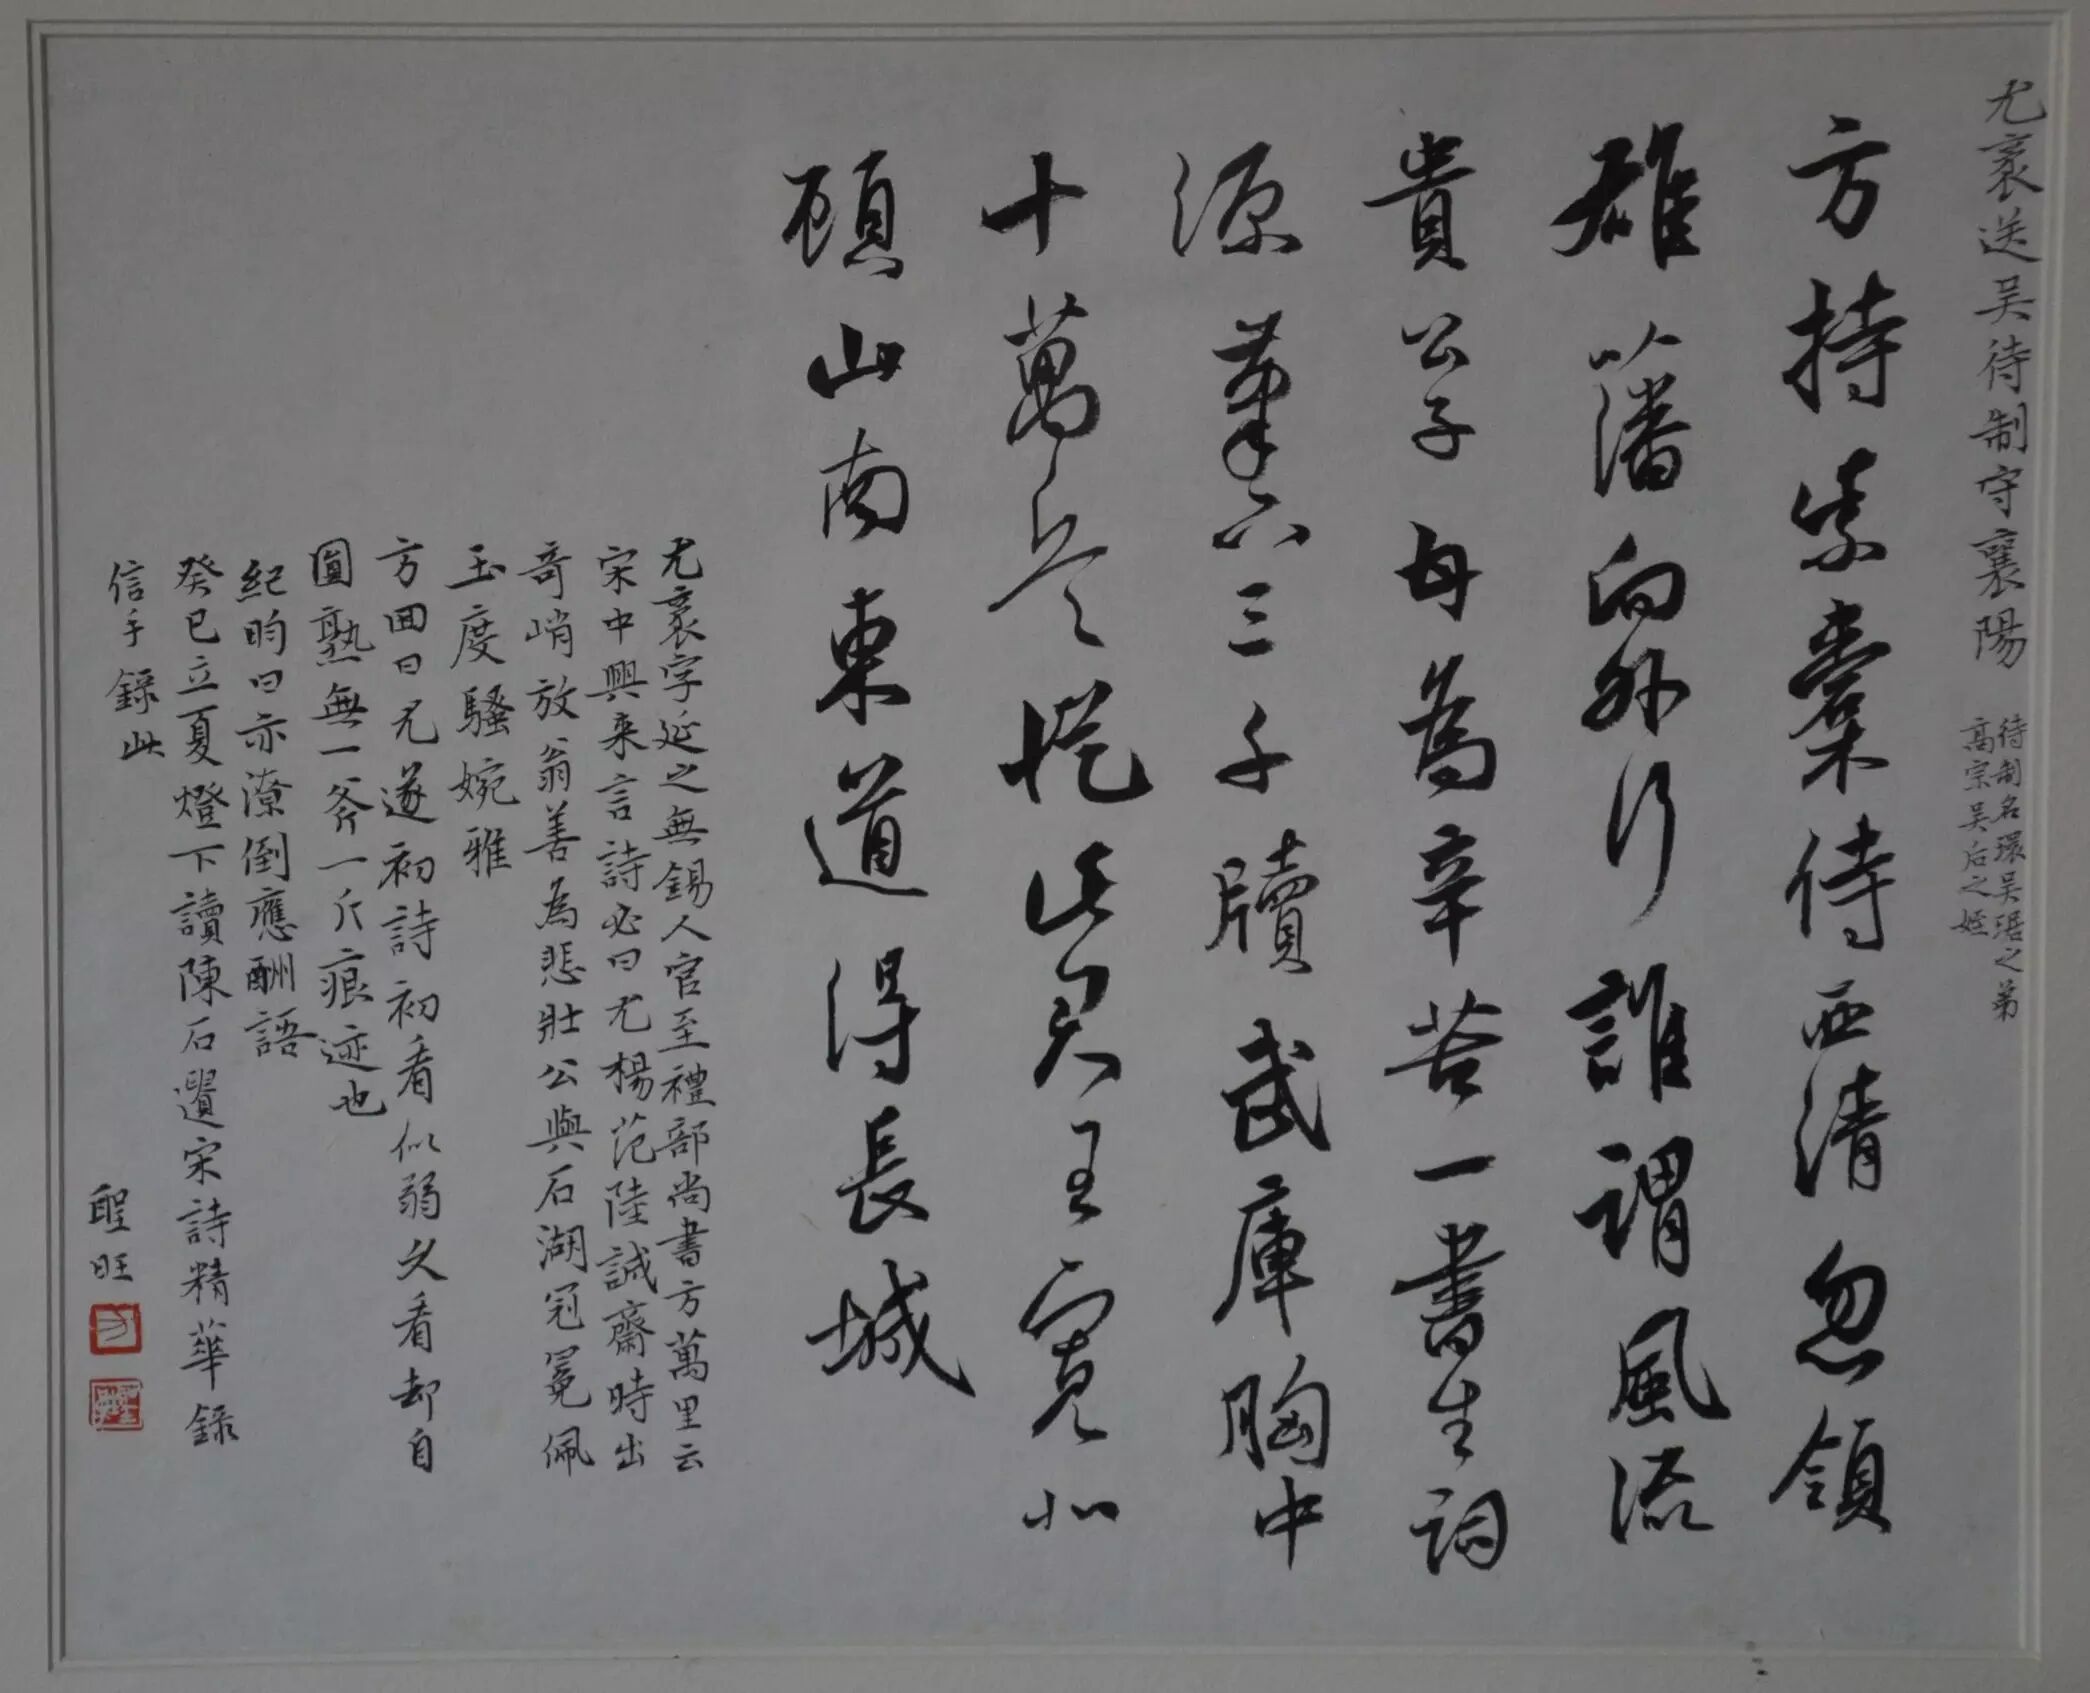 尤袤送吳待制守襄陽
待制名環吳琚之弟
高宗吳后之姪
方持紫橐侍西清忽領
雄籓向外行誰謂風流
貴公子甘為辛苦一書生詞
源筆下三千牘武庫胸中
十萬兵從此君王寬北
顧山南東道得長城
尤袤字延之無錫人官至禮部尚書方萬里云
宋中興來言詩必曰尤楊范陸誠齋時出
奇峭放翁善為悲壯公與石湖冠冕佩
玉度騷婉雅
方回曰尤遂初詩初看似弱久看却自
圓熟無一斧一斤痕迹也
紀昀曰亦潦倒應酬語
癸巳立夏燈下讀陳石遺宋詩精華錄
信手錄此
聖旺